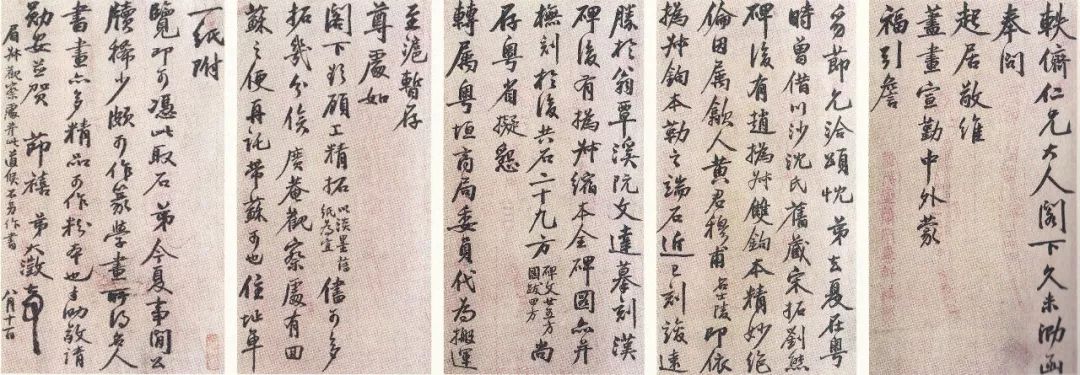 軼儕仁兄大人閣下久未泐函
奉問
起居敬維
藎畫宣勤中外蒙
福引詹
易節允洽頌忱 弟去夏在粵
時曾借川沙沈氏舊藏宋拓劉熊
碑後有趙撝叔雙鉤本精妙絕
倫因属歙人黃君穆甫名士陵即依
撝叔鉤本勒之端石近已刻竣遠
勝於翁覃溪阮文達摹刻漢
碑後有撝叔縮本全碑圖亦并
橅刻於後共石二十九方碑文廿五方圖跋四方尚
存粵省擬懇
轉属粵垣商局委員代為搬運
至滬暫存
尊處如
閣下欲顧工精拓以淡墨舊紙為宜儘可多
拓幾分俟 廣菴觀察處有回
蘇之便再託帶蘇可也住址單
一紙附
覽即可憑此取石 弟今夏事閒公
牘稀少頗可作篆學畫所得名人
書畫亦多精品可作粉本也手泐敬請
勛安並賀 節禧 弟大澂
八月十一日
眉叔觀察處并此道候不另作書